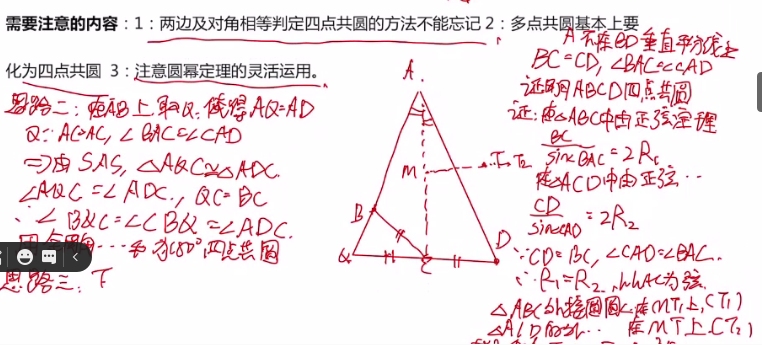 需要注意的内容：1：两边及对角相等判定四点共圆的方法不能忘记 2：多点共圆基本上要
化为四点共圆 3：注意圆幂定理的灵活运用。
思路二：在AB上取Q.使得AQ=AD
∵AC=AC, ∠BAC=∠CAD
⇒由SAS, △AQC≌△ADC.
∠AQC=∠ADC, QC=BC
∴∠BQC=∠CBQ=∠ADC.
为180°,四点共圆
思路三：
A
M
T₁ T₂
B
Q
C
D
A不在BD垂直平分线上
BC=CD, ∠BAC=∠CAD
证明ABCD四点共圆
证:在△ABC中由正弦定理
BC/sin∠BAC=2R₁
在△ACD中由正弦··
CD/sin∠CAD=2R₂
∵CD=BC, ∠CAD=∠BAC.
∴R₁=R₂,以AC为弦.
△ABC外接圆圆心在MT上(T₁)
△ACD的外··在MT上(T₂)